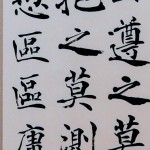 遵之莫
挹之莫測
愚區區庸